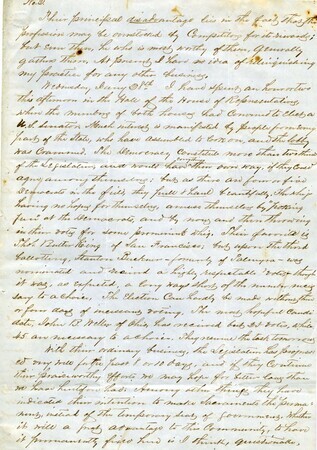 No. 2.
Their principal disadvantage lies in the fact, that the
profession may be overstocked by Competitors for its rewards;
but even then, he who is most worthy of them, generally
gathers them. At present, I have no idea of relinquishing
my practice for any other business.
Wednesday Jan'y 21st. I have spent an hour or two
this afternoon in the Hall of the House of Representatives
where the members of both houses had Convened to elect a
U.S. Senator. Much interest is manifested by people from every
part of the State, who have assembled to look on, and the lobby
was Crammed. The Democrats Constitute more than two thirds
of the Legislature and could have everything their own way, if they could
agree among themselves; but as there are
Democrats in the field they pull & haul beautifully. The whigs
having no hopes for themselves, amuse themselves by poking
fun at the Democrats, and by now and then throwing
in their votes for some prominent whig. Their favorite is
Thos. Butler King of San Francisco; but upon the third
ballotting, formerly of Palmyra was
nominated and received a highly respectable vote, though
it was, as expected, a long ways short of the number neces-
sary to a choice. The Election Can hardly be made within three
or four days of incessant voting. The most hopeful Candi-
date, John B. Weller of Ohio, has received but 22 votes, while
45 are necessary to a choice. They resume the task tomorrow.
With their ordinary business, the Legislature has progress-
ed very well for the past 10 days, and if they Continue
their praiseworthy efforts we may hope for better laws than
we have hitherto had. Among other things, they have
indicated their intention to make Sacramento the perma-
nent, instead of the temporary seat of government. Whether
it will be a great advantage to the Community, to have
it permanently fixed here is, I think, questionable.